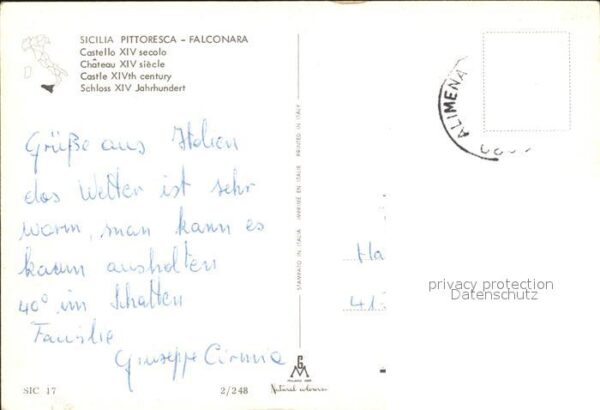 SICILIA PITTORESCA – FALCONARA
Castello XIV secolo
Château XIV siècle
Castle XIVth century
Schloss XIV Jahrhundert
Grüße aus Italien
das Wetter ist sehr
warm, man kann es
kaum aushalten
40° im Schatten
Familie
Giuseppe
SIC 17
2/248
STAMPATO IN ITALIA IMPRIMÉ EN ITALIE PRINTED IN ITALY
Natural colour
ALIMENA
Ha
41
privacy protection
Datenschutz